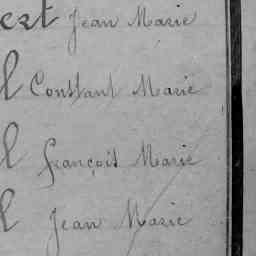 ert Jean Marie
l Constant Marie
l François Marie
l Jean Marie